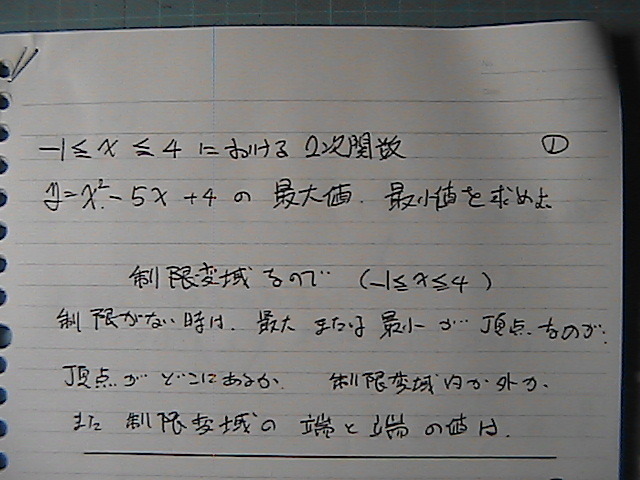 -1≦x≦4 における 2次関数 ①
y=x²-5x+4 の 最大値. 最小値を求めよ
制限変域なので (-1≦x≦4)
制限がない時は. 最大 または 最小 が 頂点なのが.
頂点が どこにあるか. 制限変域内か外か.
また 制限変域の 端と端の値は.